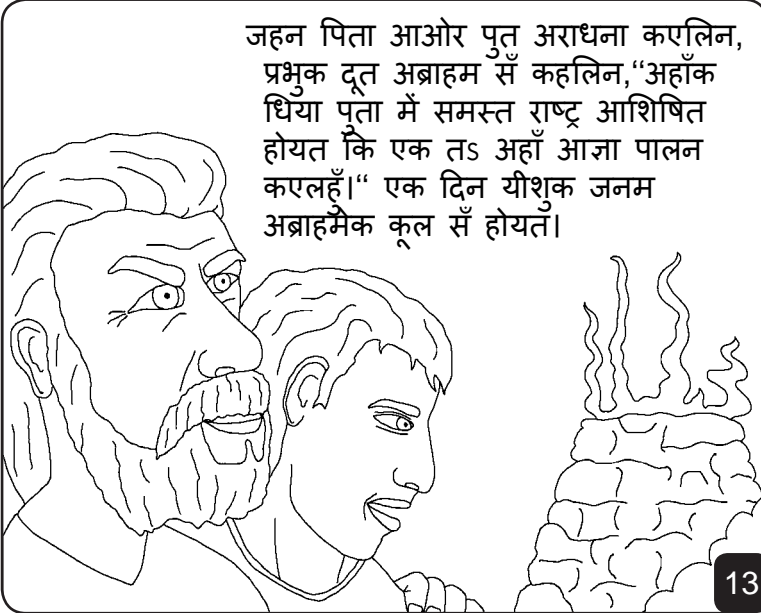 जहन पिता आओर पुत अराधना कएलिन,
प्रभुक दूत अब्राहम सँ कहलिन,“अहाँक
धिया पुता में समस्त राष्ट्र आशिषित
होयत कि एक तऽ अहाँ आज्ञा पालन
कएलहुँ।“ एक दिन यीशुक जनम
अब्राहमेक कूल सँ होयत।
13